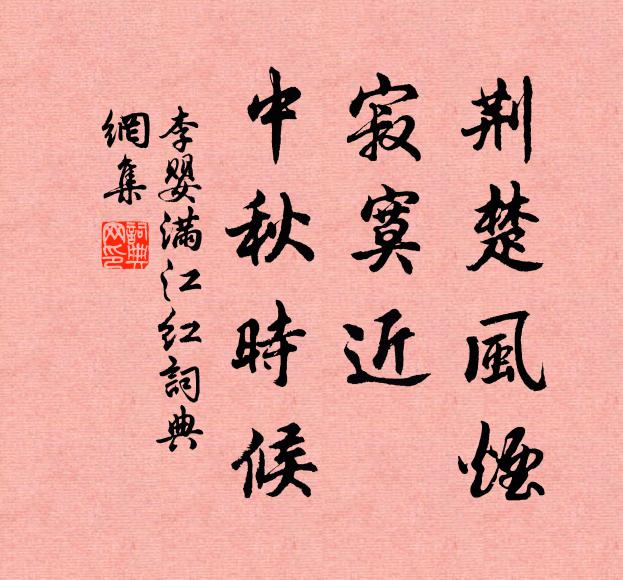 荆楚風煙
寂寞近
中秋時候
李嬰滿江紅詞典
網集
詞典
网印